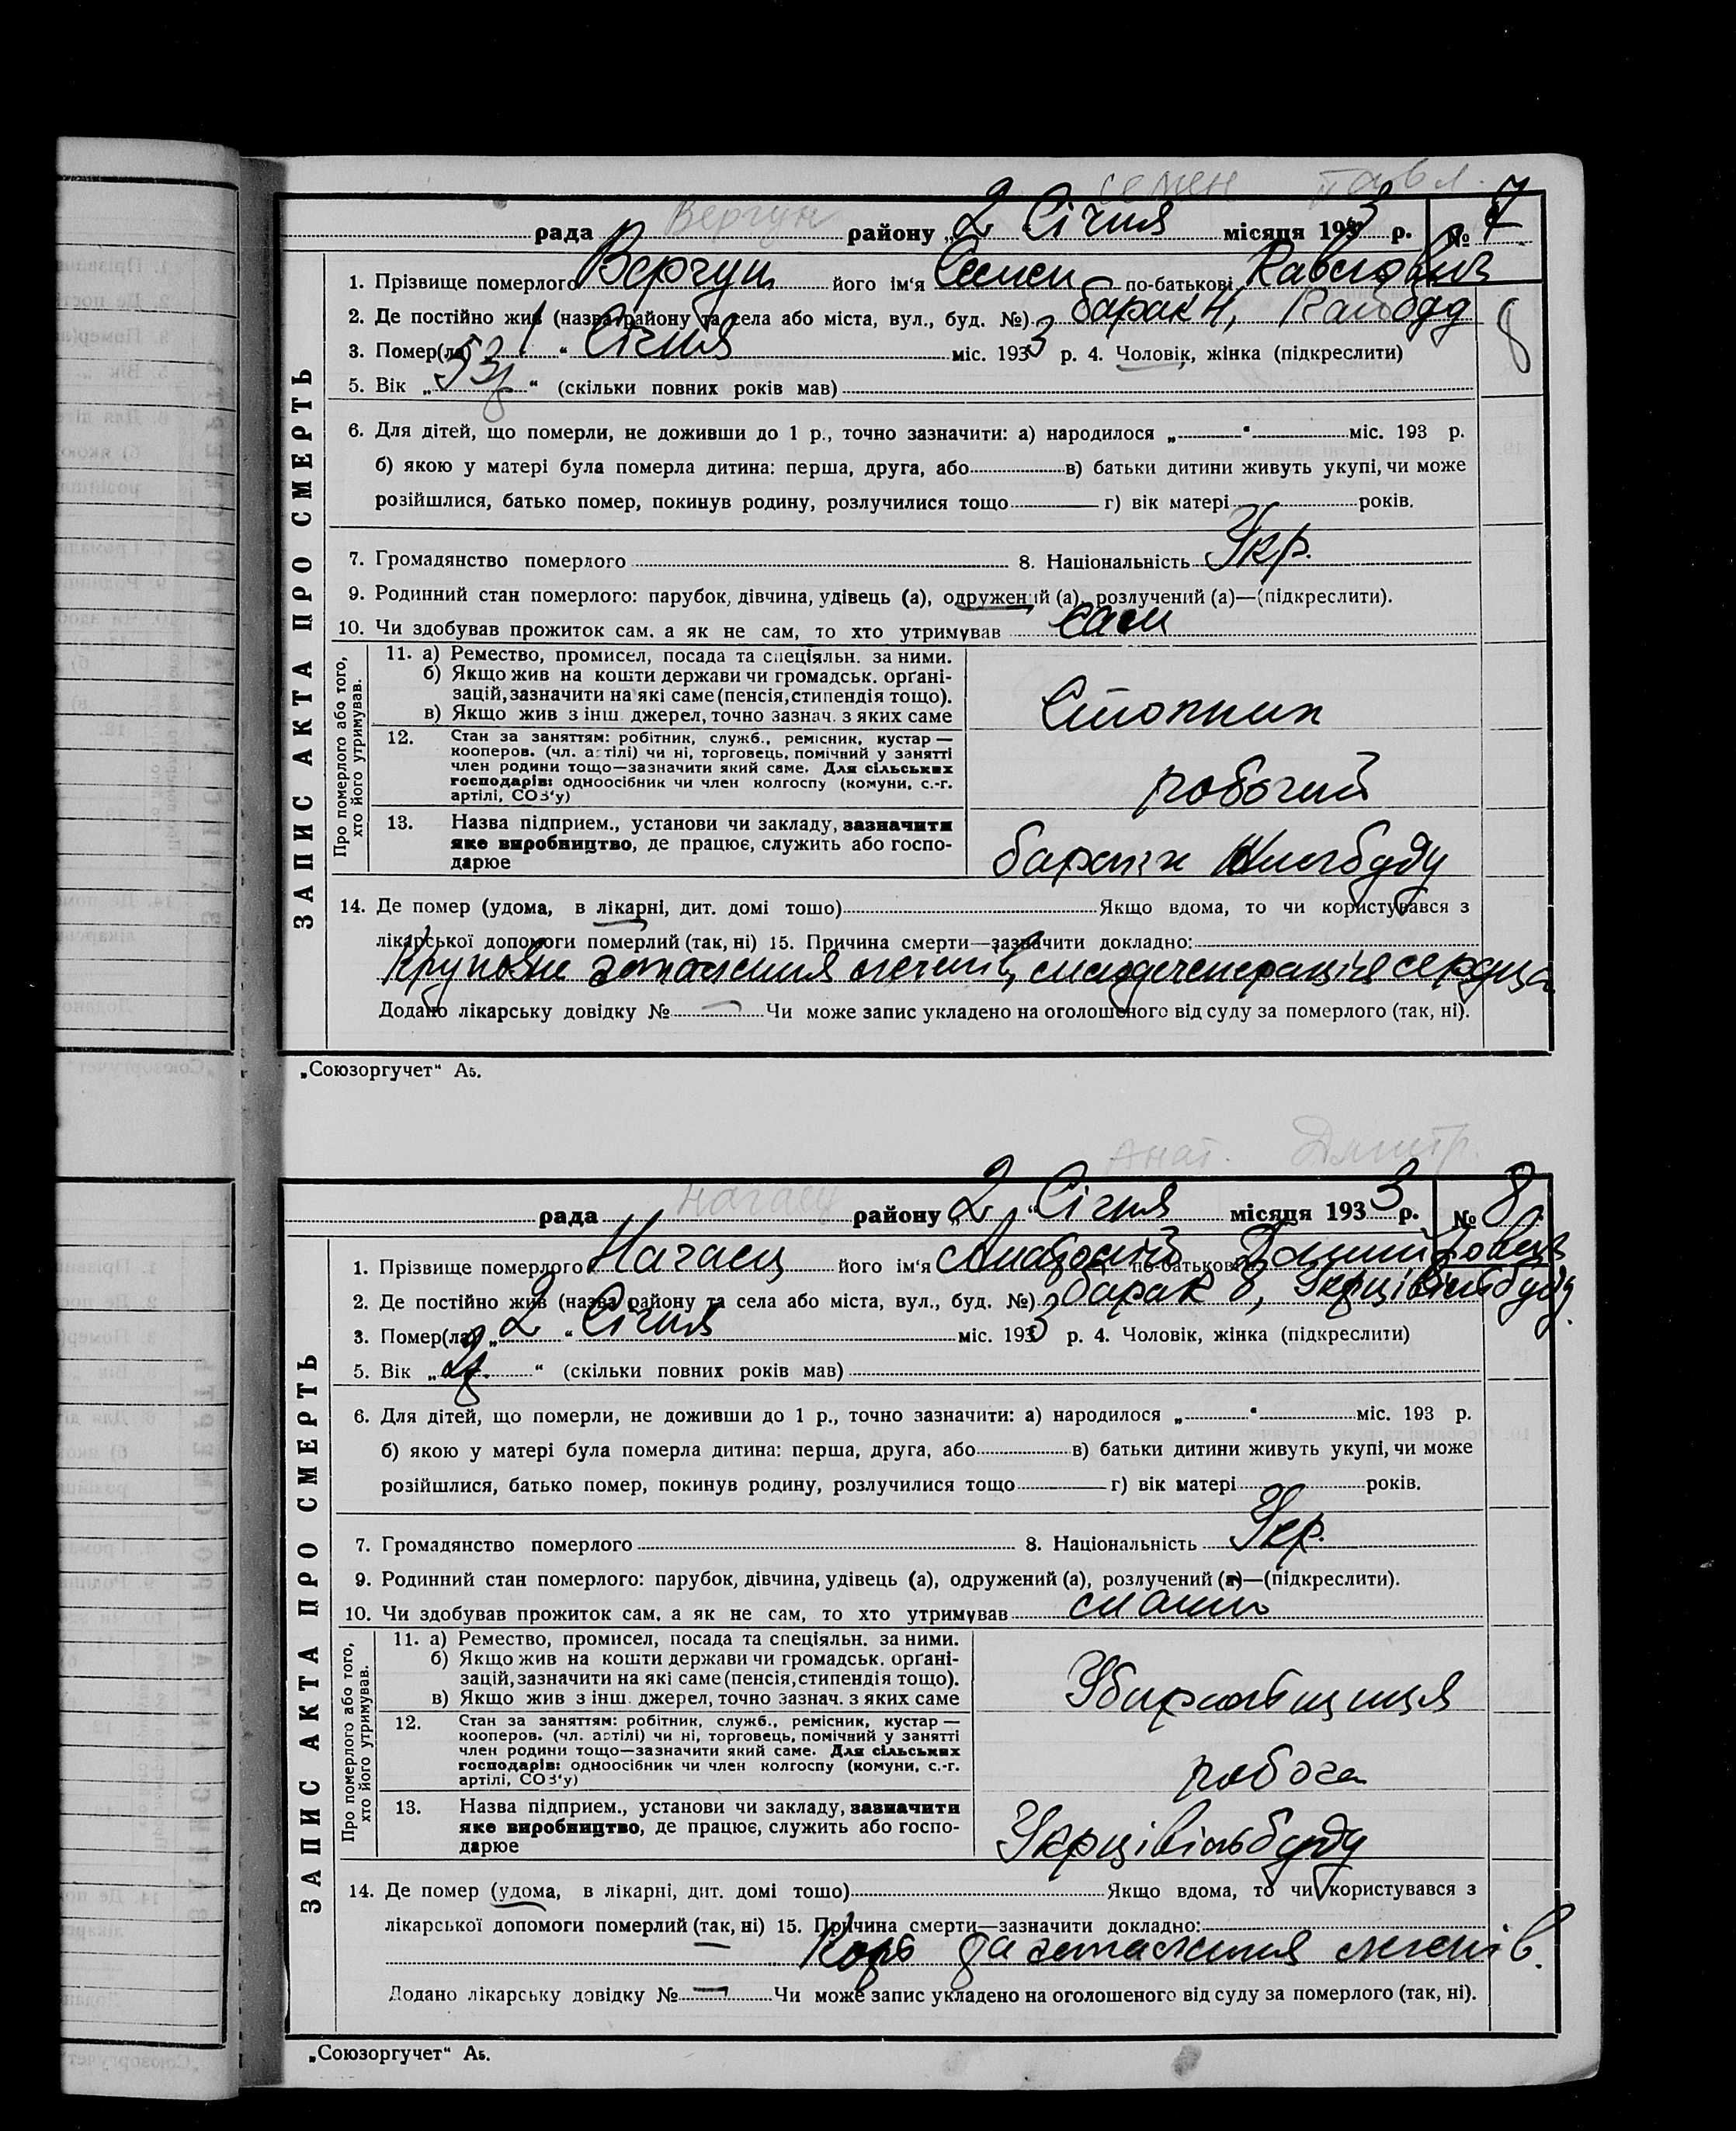 семен Павл.
рада Вергун району „2" Січня місяця 1933 р. № 7
1. Прізвище померлого Вергун його ім'я Семен по-батькові Павлович
2. Де постійно жив (назва району та села або міста, вул., буд. №) барак 4,
8
3. Помер(ла) „1" Січня міс. 1933 р. 4. Чоловік, жінка (підкреслити)
5. Вік „53 р" (скільки повних років мав)
6. Для дітей, що померли, не доживши до 1 р., точно зазначити: а) народилося „ " міс. 193 р.
б) якою у матері була померла дитина: перша, друга, або в) батьки дитини живуть укупі, чи може
розійшлися, батько помер, покинув родину, розлучилися тощо г) вік матері років.
7. Громадянство померлого 8. Національність Укр.
9. Родинний стан померлого: парубок, дівчина, удівець (а), одружений (а), розлучений (а)—(підкреслити).
10. Чи здобував прожиток сам, а як не сам, то хто утримував сам
ЗАПИС АКТА ПРО СМЕРТЬ
Про померлого або того, хто його утримував.
11. а) Ремество, промисел, посада та спеціяльн. за ними.
б) Якщо жив на кошти держави чи громадськ. орґані-
зацій, зазначити на які саме (пенсія, стипендія тощо).
в) Якщо жив з інш. джерел, точно зазнач. з яких саме
12. Стан за заняттям: робітник, служб., ремісник, кустар —
кооперов. (чл. артілі) чи ні, торговець, помічний у занятті
член родини тощо—зазначити який саме. Для сільських
господарів: одноосібник чи член колгоспу (комуни, с.-г.
артілі, СОЗ'у)
робочий
13. Назва підприєм., установи чи закладу, зазначити
яке виробництво, де працює, служить або госпо-
дарює
14. Де помер (удома, в лікарні, дит. домі тощо) Якщо вдома, то чи користувався з
лікарської допомоги померлий (так, ні) 15. Причина смерти—зазначити докладно:
Крупозне запалення легенів, серця
Додано лікарську довідку № — Чи може запис укладено на оголошеного від суду за померлого (так, ні).
„Союзоргучет" А5.
Анат. Дмитр.
рада Нагаец району „2" Січня місяця 1933 р. № 8.
1. Прізвище померлого Нагаец його ім'я Анатолій по-батькові Дмитрович
2. Де постійно жив (назва району та села або міста, вул., буд. №) барак 8, Укрцівільбуду.
3. Помер(ла) „2" Січня міс. 1933 р. 4. Чоловік, жінка (підкреслити)
5. Вік „2 р." (скільки повних років мав)
6. Для дітей, що померли, не доживши до 1 р., точно зазначити: а) народилося „ " міс. 193 р.
б) якою у матері була померла дитина: перша, друга, або в) батьки дитини живуть укупі, чи може
розійшлися, батько помер, покинув родину, розлучилися тощо г) вік матері років.
7. Громадянство померлого 8. Національність Укр.
9. Родинний стан померлого: парубок, дівчина, удівець (а), одружений (а), розлучений (а)—(підкреслити).
10. Чи здобував прожиток сам, а як не сам, то хто утримував
ЗАПИС АКТА ПРО СМЕРТЬ
Про померлого або того, хто його утримував.
11. а) Ремество, промисел, посада та спеціяльн. за ними.
б) Якщо жив на кошти держави чи громадськ. орґані-
зацій, зазначити на які саме (пенсія, стипендія тощо).
в) Якщо жив з інш. джерел, точно зазнач. з яких саме
Убиральщиця
12. Стан за заняттям: робітник, служб., ремісник, кустар —
кооперов. (чл. артілі) чи ні, торговець, помічний у занятті
член родини тощо—зазначити який саме. Для сільських
господарів: одноосібник чи член колгоспу (комуни, с.-г.
артілі, СОЗ'у)
робоча
13. Назва підприєм., установи чи закладу, зазначити
яке виробництво, де працює, служить або госпо-
дарює
Укрцівільбуду
14. Де помер (удома, в лікарні, дит. домі тощо) Якщо вдома, то чи користувався з
лікарської допомоги померлий (так, ні) 15. Причина смерти—зазначити докладно:
Корь та запалення легенів.
Додано лікарську довідку № — Чи може запис укладено на оголошеного від суду за померлого (так, ні).
„Союзоргучет" А5.